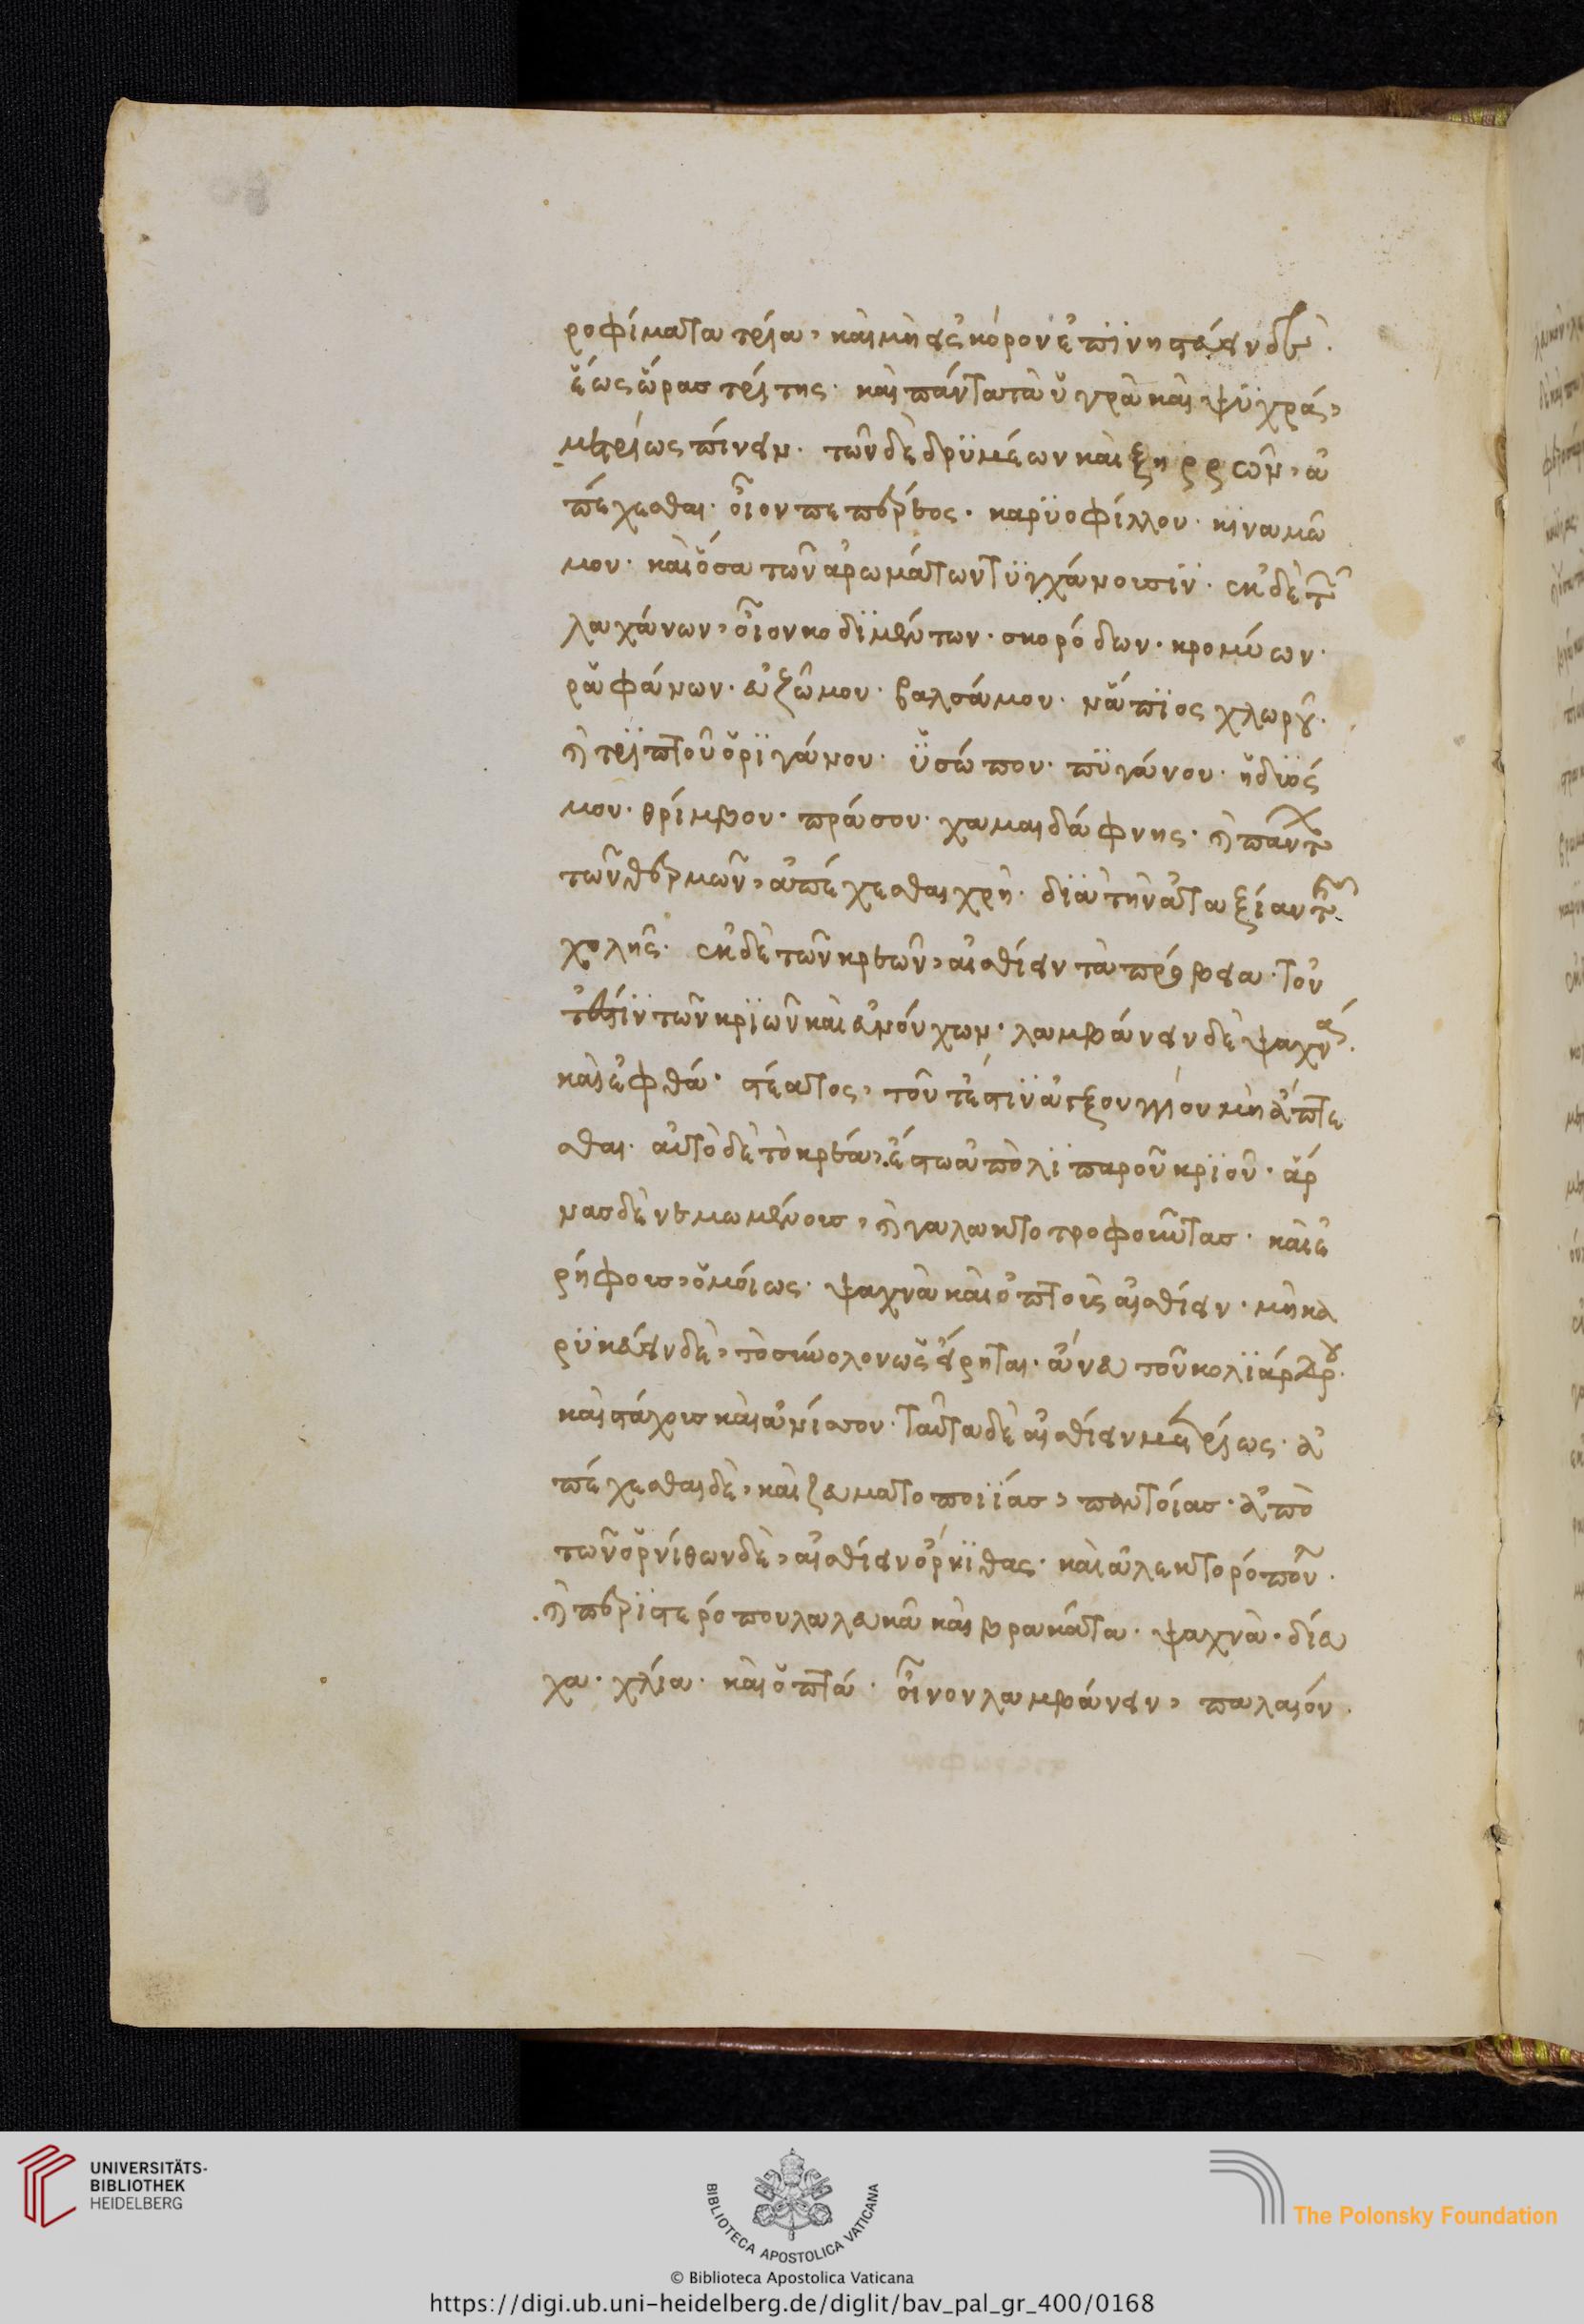 ροφίματα τρία, καὶ μὴ εἰς κόρον· ἐπϊνηστεύειν δὲ·
ἕως ὥρας τρίτης· καὶ πάντα τὰ ὑγρὰ καὶ ψϋχρά,
μετρίως πίνειν. τῶν δὲ δρϋμέων καὶ ξηρρῶν, ἀ
πέχεσθαι· οἷον πεπέρεος· καρϋοφίλλου· κϊναμώ
μου· καὶ ὅσα τῶν ἀρωμάτων τϋγχάνουσϊν· ἐκ δὲ τῶν
λαχάνων, οἷον κοδϊμέντων· σκορόδων· κρομύων·
ραφάνων· εὐζώμου· βαλσάμου· νάπϊος χλωροῦ·
ἢ τριπτοῦ ὀρϊγάνου· ὑσώπου· πϋγάνου· ἡδϊός
μου· θρίμβου· πράσου· χαμαιδάφνης· ἢ πάντων
τῶν θερμῶν, ἀπέχεσθαι χρὴ· δϊὰ τὴν ἀταξίαν τῆς
χολῆς· ἐκ δὲ τῶν κρεῶν, αἰσθίειν τὰ πρόβεια· τοῦ
τέστϊν τῶν κρϊῶν καὶ εὐνούχων· λαμβάνειν δὲ ψαχνά·
καὶ ἐφθά· στέατος, τοῦτέστϊν ἀξουγγίου μὴ ἅπτε
σθαι· αὐτὸ δὲ τὸ κρέα, ἔστω ἀπὸ λϊπαροῦ κρϊοῦ· ἄρ
νας δὲ νεμωμένους, ἢ γαλακτοτροφοῦντας· καὶ ἐ
ρήφους, ὁμοίως· ψαχνὰ καὶ ὀπτοὺς αἰσθίειν· μὴ κα
ρϋκεύειν δὲ, τὸ σύνολον ὡς εἴρηται· ἄνευ τοῦ κολϊάνδρου·
καὶ στάχους καὶ ἀνίσου· ταῦτα δὲ αἰσθίειν μετρίως· ἀ
πέχεσθαι δὲ, καὶ ζεματοποιΐας, παντοίας· ἀπὸ
τῶν ὀρνίθων δὲ, αἰσθίειν ὄρνϊθας· καὶ ἀλεκτορόπουλα·
ἢ περϊστερόπουλα λευκὰ καὶ βρακάτα· ψαχνὰ· δίε
χα· χλία· καὶ ὀπτά· οἶνον λαμβάνειν, παλαιόν·
UNIVERSITÄTS-
BIBLIOTHEK
HEIDELBERG
BIBLIOTECA APOSTOLICA VATICANA
The Polonsky Foundation
© Biblioteca Apostolica Vaticana
https://digi.ub.uni-heidelberg.de/diglit/bav_pal_gr_400/0168